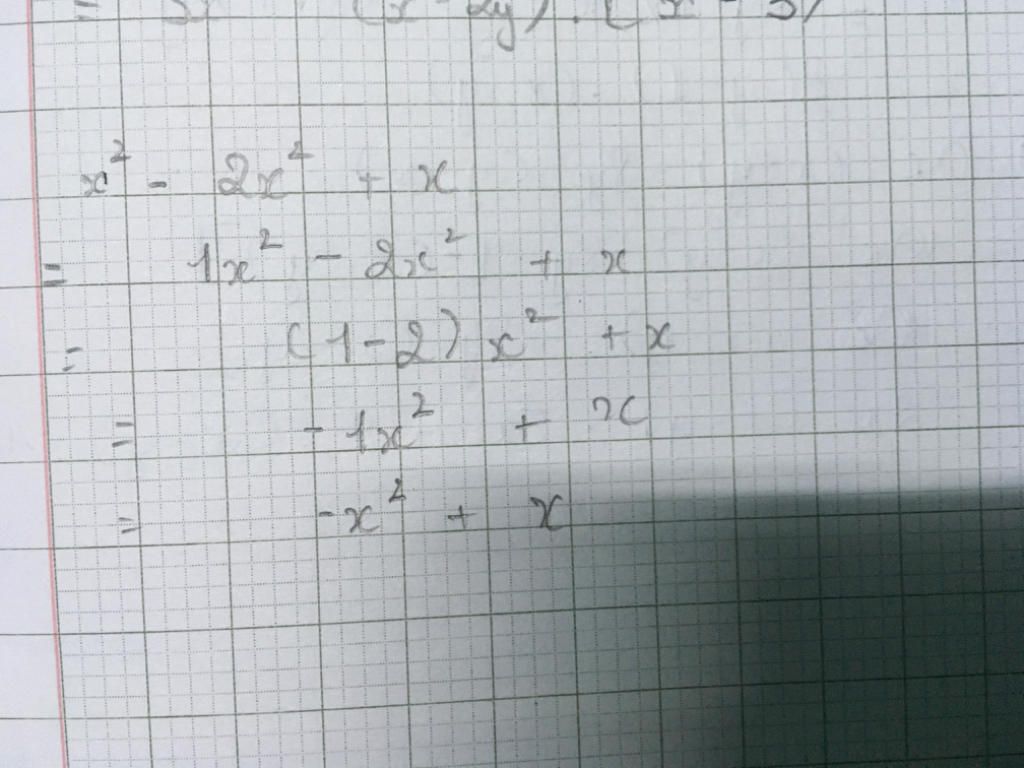 (x - 2y) . (x - 3)
x² - 2x² + x
= 1x² - 2x² + x
= (1-2) x² + x
= - 1x² + x
= -x² + x